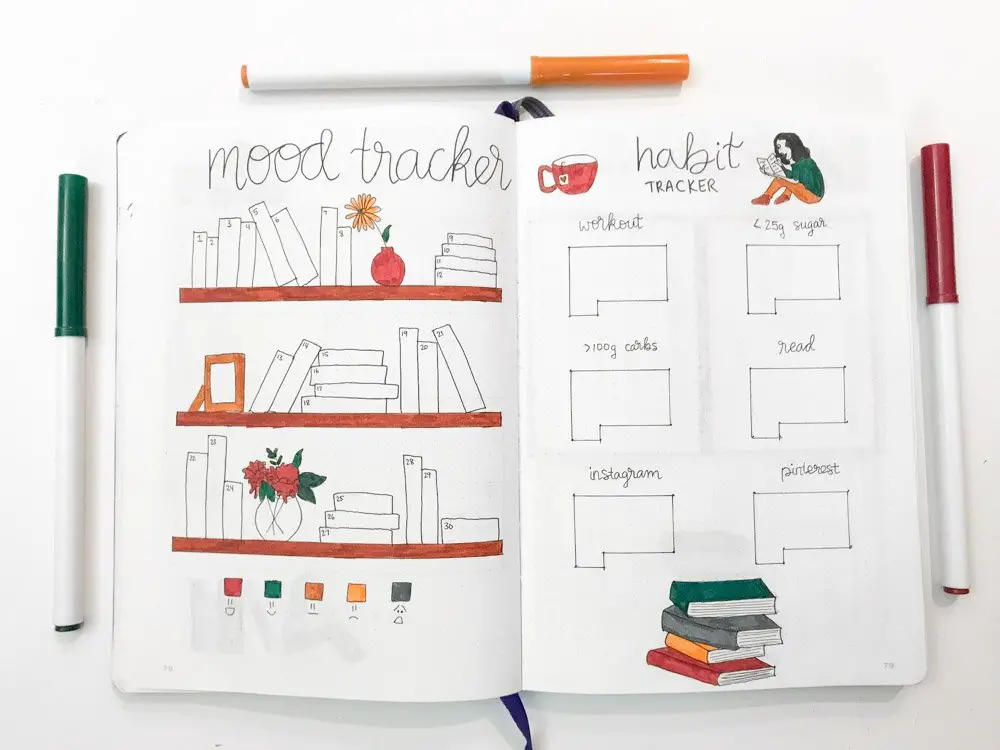 mood tracker
1 2 3 4 5 6 7 8 9
10
11
12
13 14 15
16
17
18
19 20 21
22 23 24 25
26
27
28 29 30
habit
TRACKER
workout
< 25g sugar
>100g carbs
read
instagram
pinterest
79